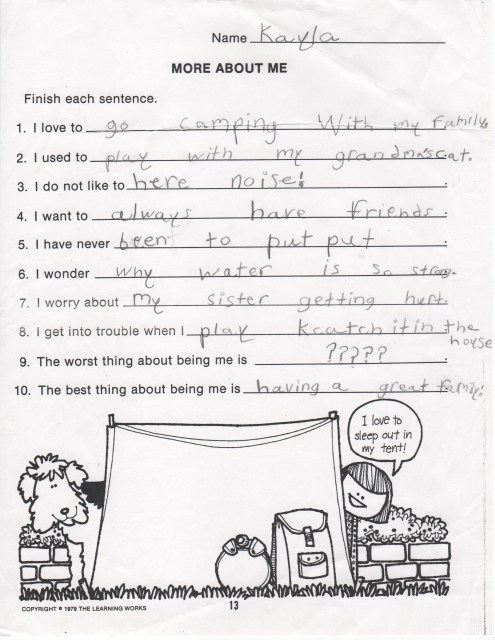 Name Kayla
MORE ABOUT ME
Finish each sentence.
1. I love to go camping With my family.
2. I used to play with my grandma's cat.
3. I do not like to here noise!
4. I want to always have friends.
5. I have never been to put put.
6. I wonder why water is so strong.
7. I worry about my sister getting hurt.
8. I get into trouble when I play Kcatch it in the
house
9. The worst thing about being me is ?????.
10. The best thing about being me is having a great family!
I love to
sleep out in
my tent!
COPYRIGHT © 1979 THE LEARNING WORKS
13